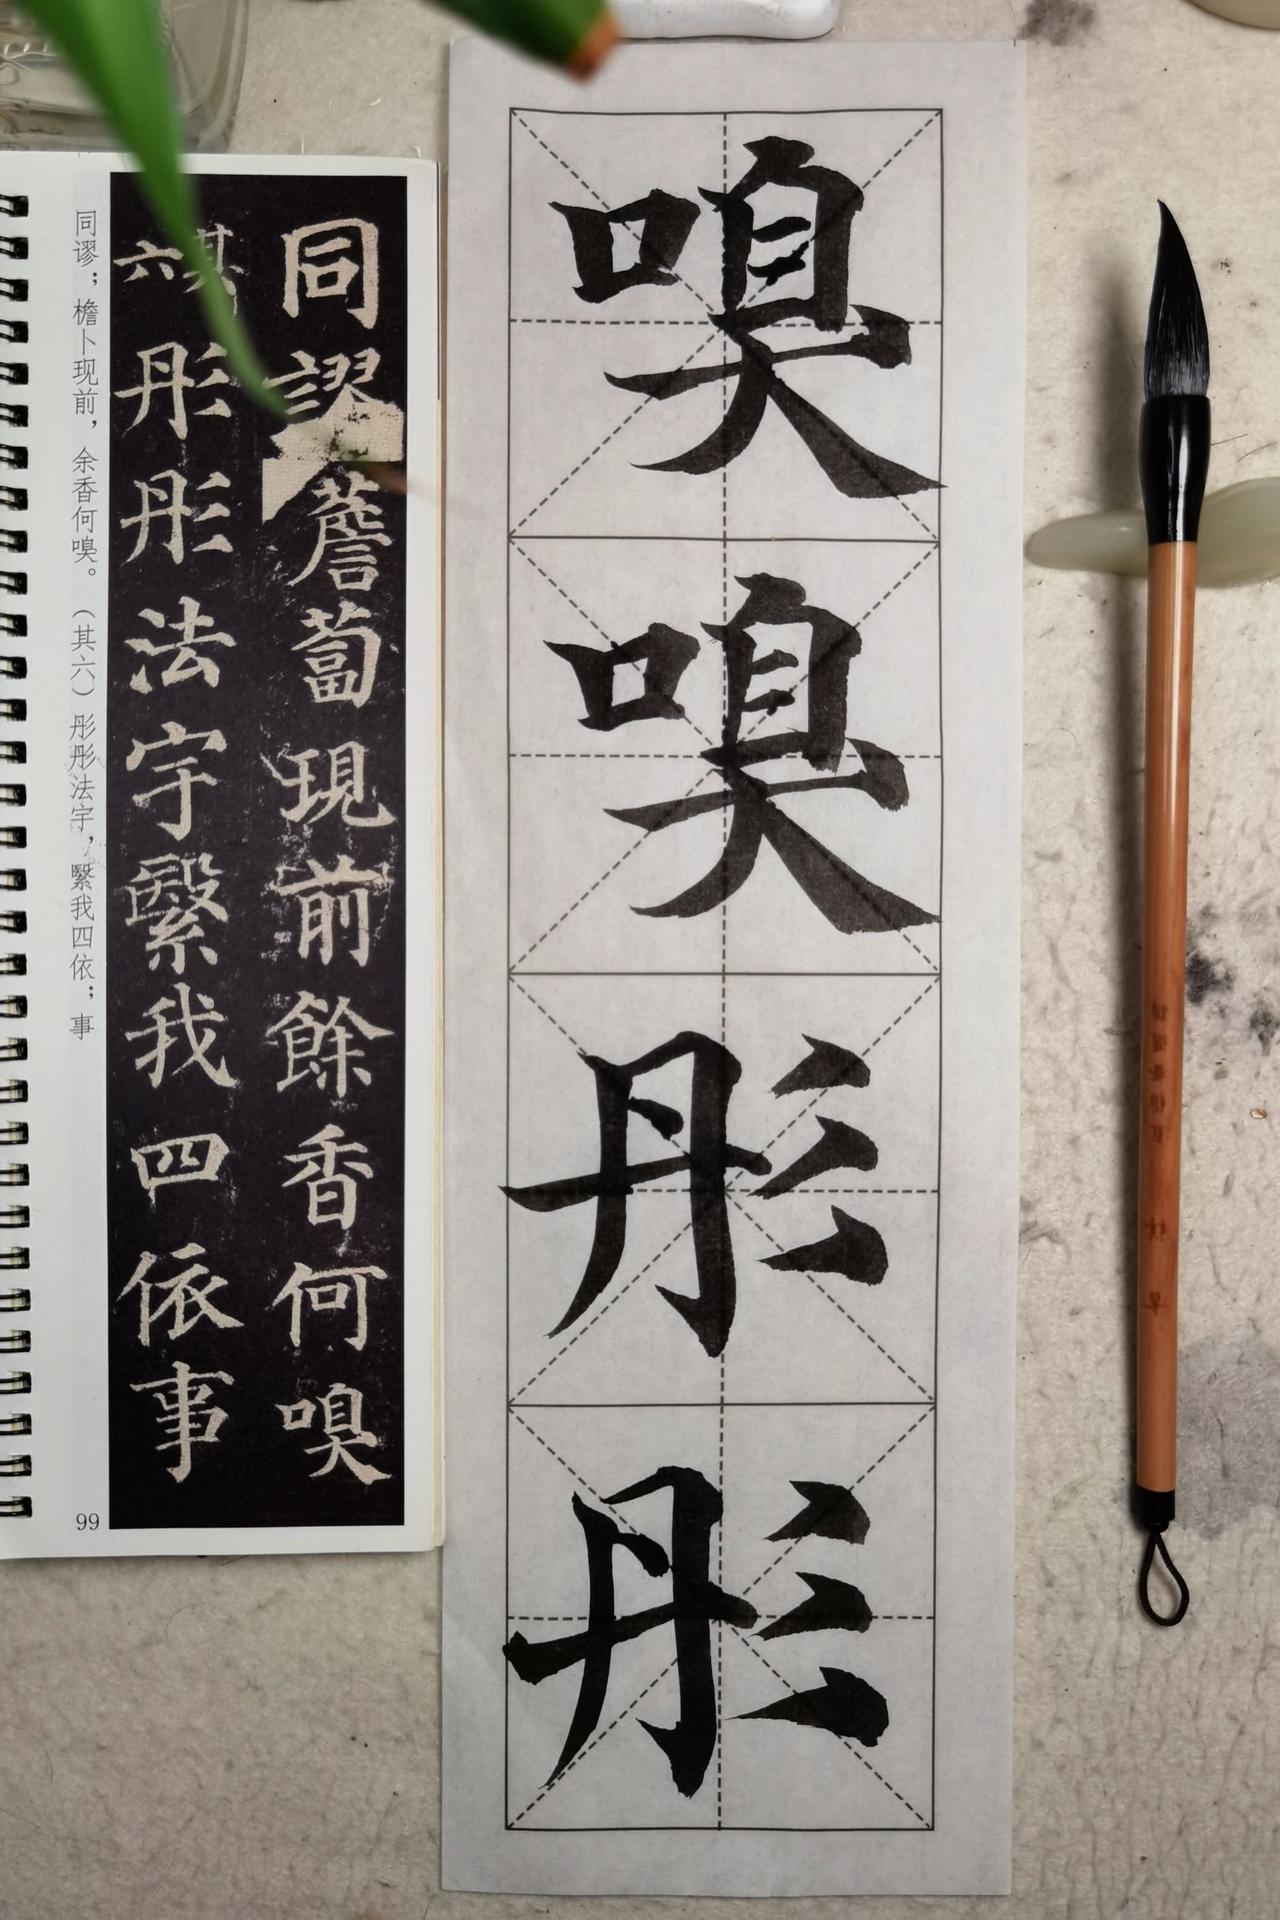 同謬薝蔔現前餘香何嗅
其六
彤彤法宇繄我四依事
同谬；檐卜现前，余香何嗅。（其六）彤彤法宇，繄我四依；事
99
嗅
嗅
彤
彤